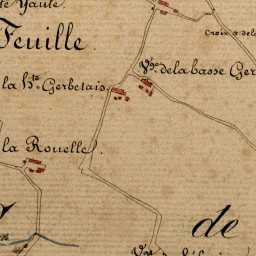 Feuille
Croix a de
Vge de la basse Ger
la hte Gerbetais
la Rouelle
de